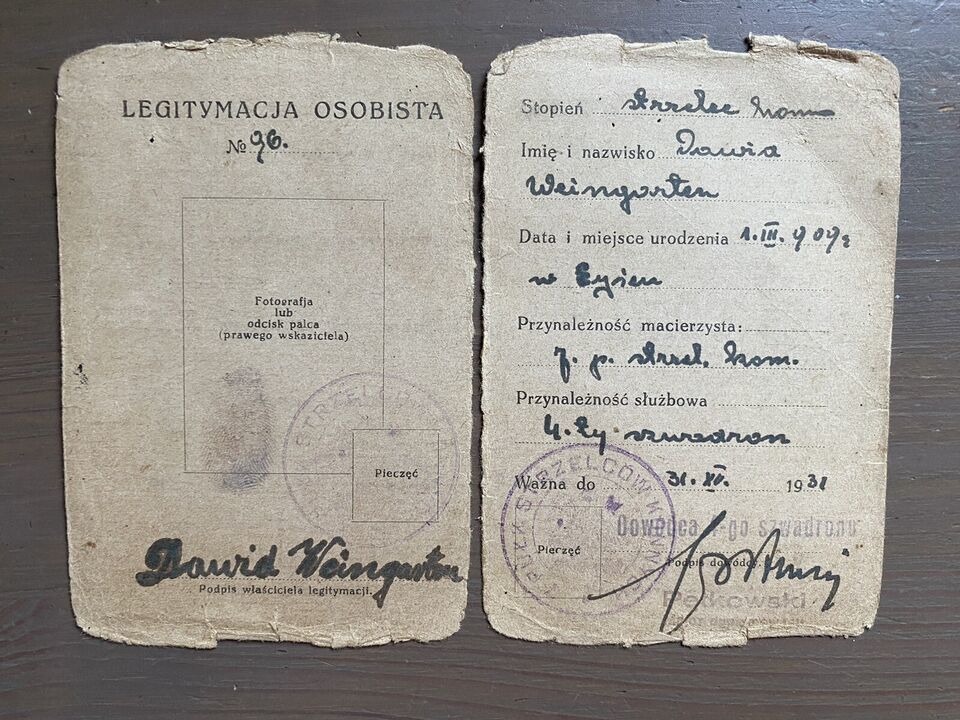 LEGITYMACJA OSOBISTA
№ 96.
Fotografja
lub
odcisk palca
(prawego wskaziciela)
STRZELCÓW
Pieczęć
Dawid Weingarten
Podpis właściciela legitymacji.
Stopień strzelec
Imię i nazwisko Dawid
Weingarten
Data i miejsce urodzenia 1.III.909r
w
Przynależność macierzysta:
7. p. strzel. kon.
Przynależność służbowa
4-ty szwadron
Ważna do 31.XII. 1931
PUŁK STRZELCÓW KONNYCH
Pieczęć
Dowódca 4-go szwadronu
Podpis dowódcy.
Petkowski